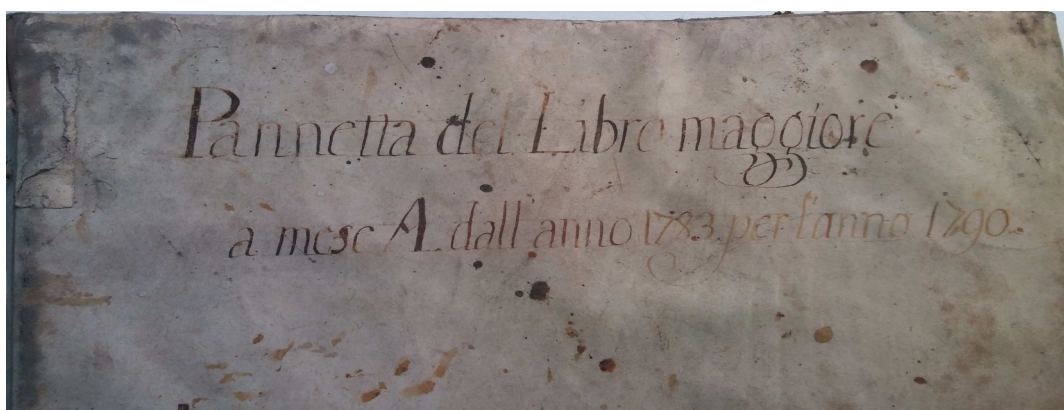 Pannetta del Libro maggiore
à mese A. dall'anno 1783. per l'anno 1790.